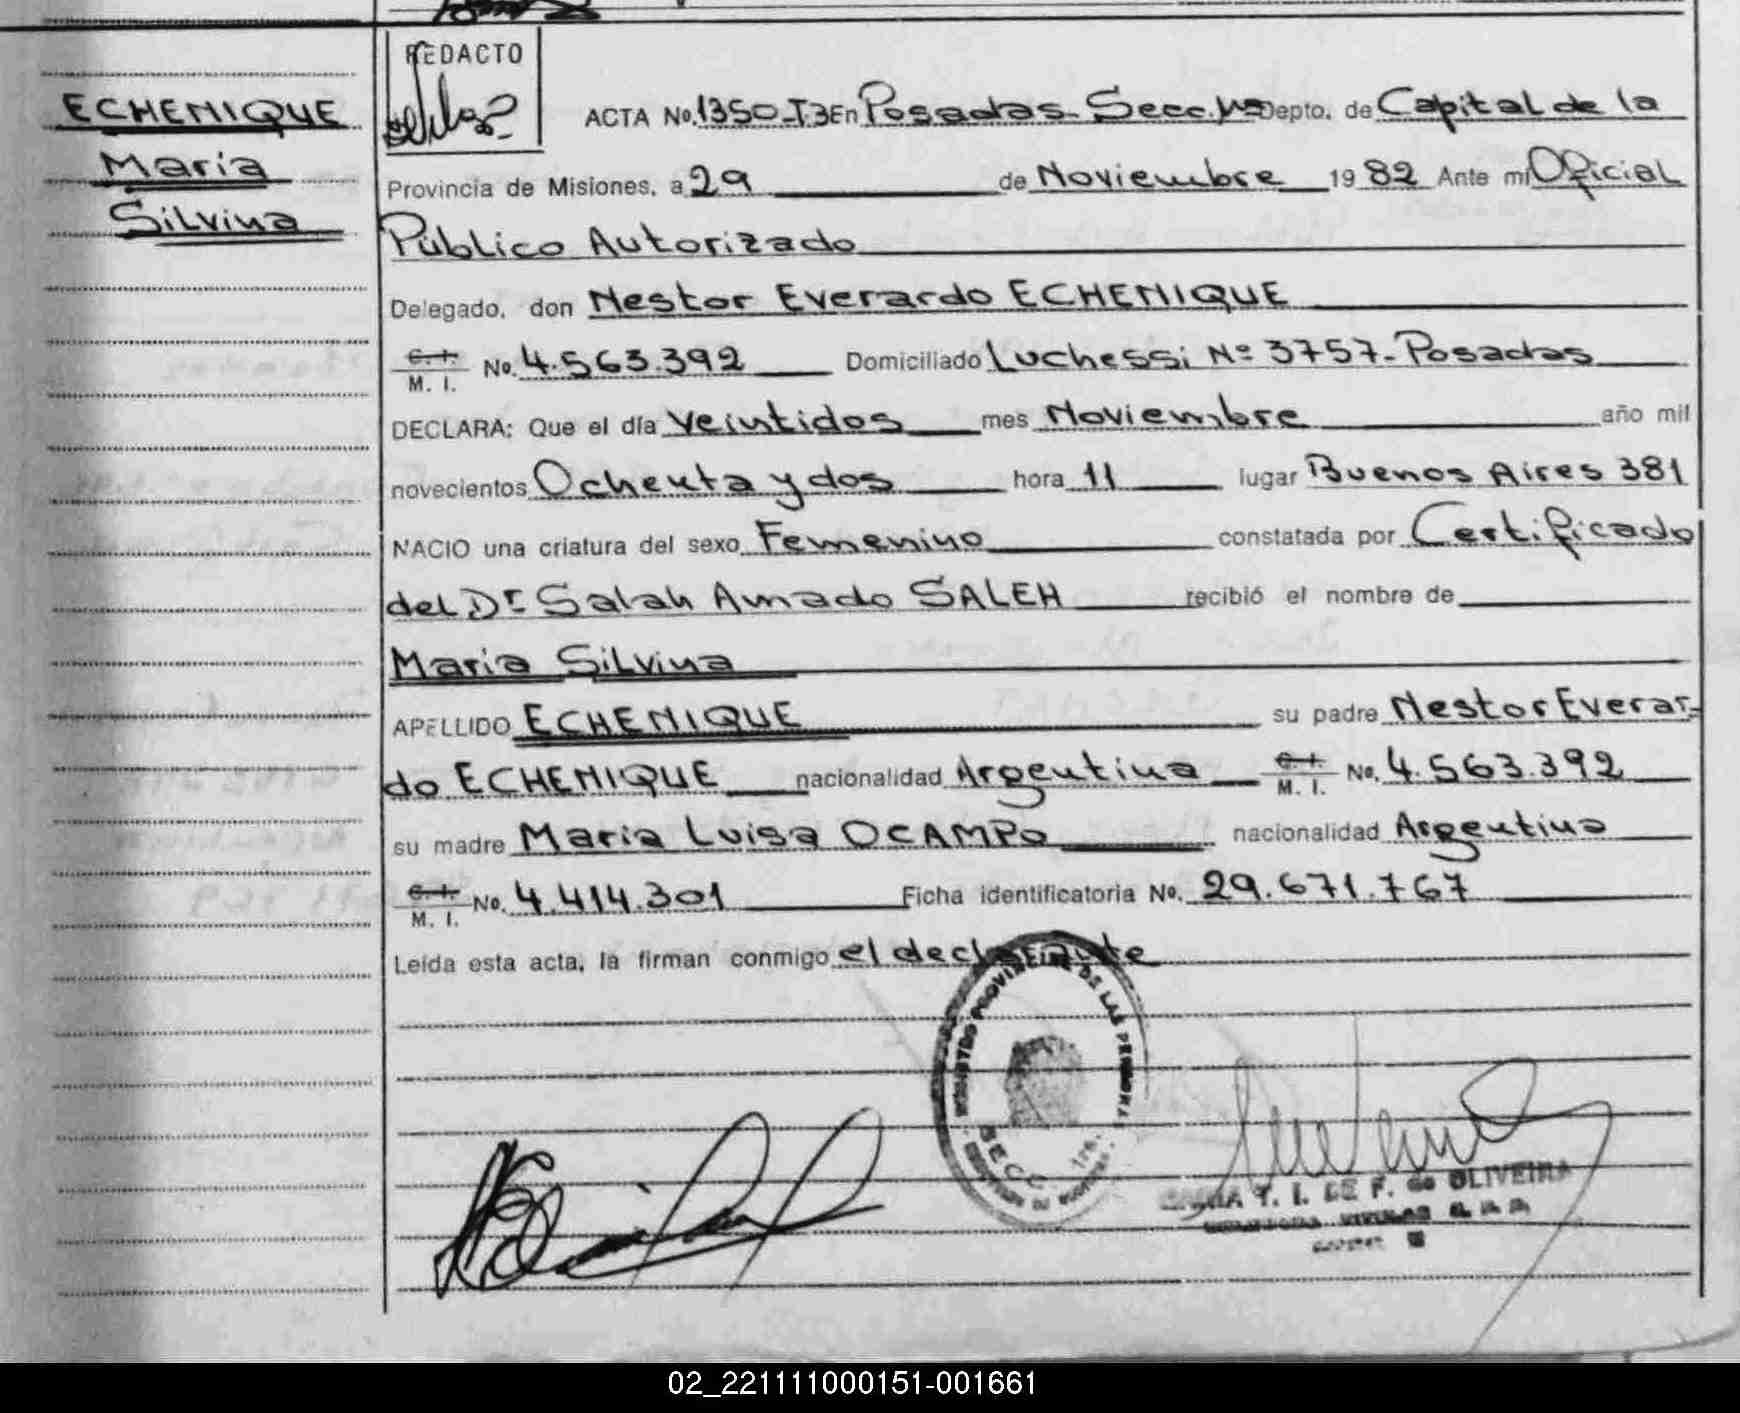 ECHENIQUE
Maria
Silvina
REDACTO
ACTA No. 1350-T3 En Posadas - Secc. 1ra Depto. de Capital de la
Provincia de Misiones, a 29 de Noviembre 1982 Ante mi Oficial
Público Autorizado
Delegado, don Nestor Everardo ECHENIQUE
C. I.
M. I. No. 4.563.392 Domiciliado Luchessi Nº 3757 - Posadas
DECLARA: Que el día veintidos mes Noviembre año mil
novecientos Ochenta y dos hora 11 lugar Buenos Aires 381
NACIO una criatura del sexo Femenino constatada por Certificado
del Dr. Salah Amado SALEH recibió el nombre de
Maria Silvina
APELLIDO ECHENIQUE su padre Nestor Everar-
do ECHENIQUE nacionalidad Argentina C. I.
M. I. No. 4.563.392
su madre Maria Luisa OCAMPO nacionalidad Argentina
C. I.
M. I. No. 4.414.301 Ficha identificatoria No. 29.671.767
Leída esta acta, la firman conmigo el declarante
REGISTRO PROVINCIAL DE LAS PERSONAS
SECC. 1ra.
T. I. DE F. de OLIVEIRA
02_221111000151-001661